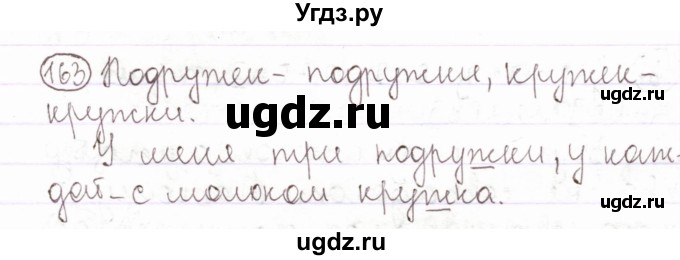 Угдз.ру
163 Подружек - подружки, кружек -
кружки.
У меня три подружки, у каж-
дой - с молоком кружка.
ugdz.ru
ugdz.ru
ugdz.ru
ugdz.ru
ugdz.ru